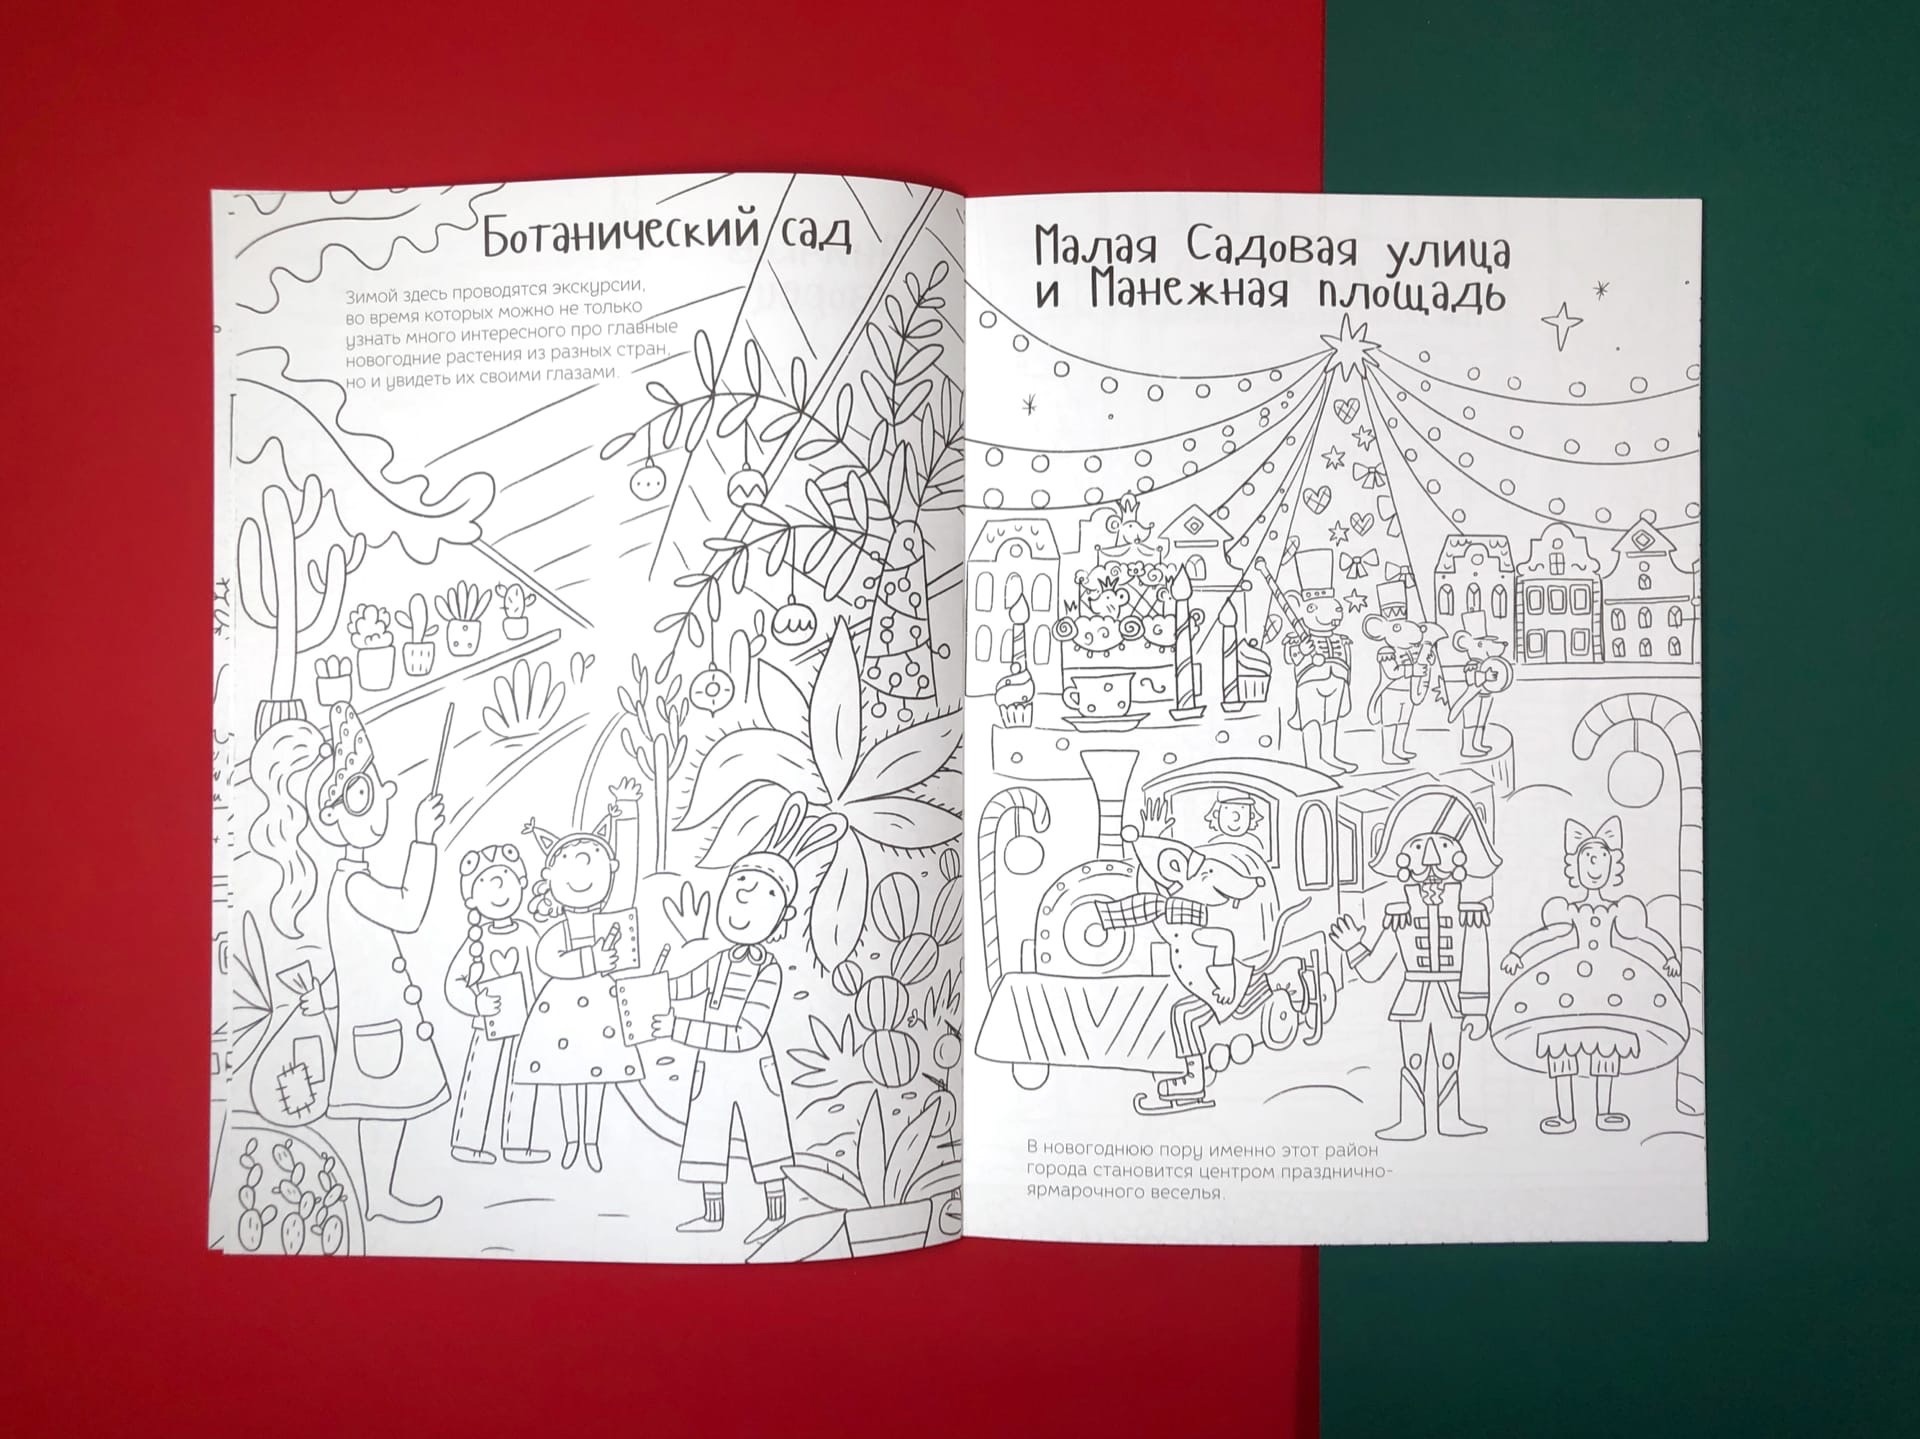 Ботанический сад
Зимой здесь проводятся экскурсии,
во время которых можно не только
узнать много интересного про главные
новогодние растения из разных стран,
но и увидеть их своими глазами.
Малая Садовая улица
и Манежная площадь
В новогоднюю пору именно этот район
города становится центром празднично-
ярмарочного веселья.